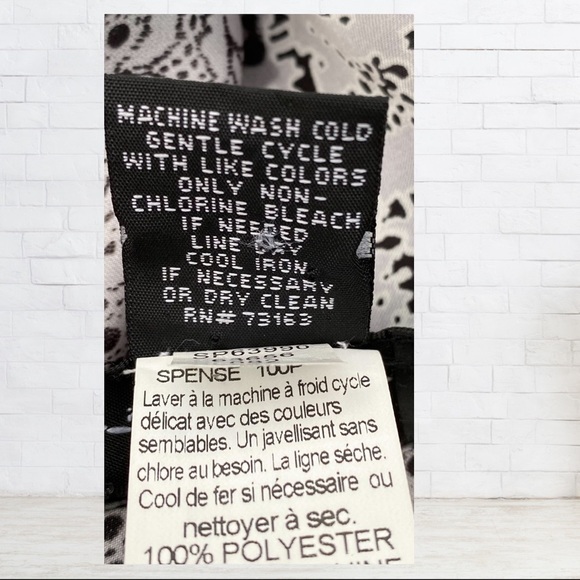 MACHINE WASH COLD
GENTLE CYCLE
WITH LIKE COLORS
ONLY NON-
CHLORINE BLEACH
IF NEEDED
LINE DRY
COOL IRON
IF NECESSARY
OR DRY CLEAN
RN# 73163
SPENSE 100P
Laver à la machine à froid cycle
délicat avec des couleurs
semblables. Un javellisant sans
chlore au besoin. La ligne séche.
Cool de fer si nécessaire ou
nettoyer à sec.
100% POLYESTER